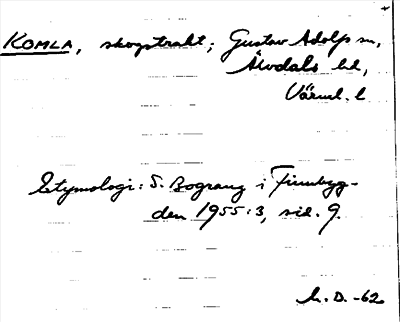 KOMLA, skogstrakt; Gustav Adolfs sn,
Älvdals hd,
Värml. l
Etymologi: S. Bograng i Finnbyg-
den 1955:3, sid. 9.
L. D. -62